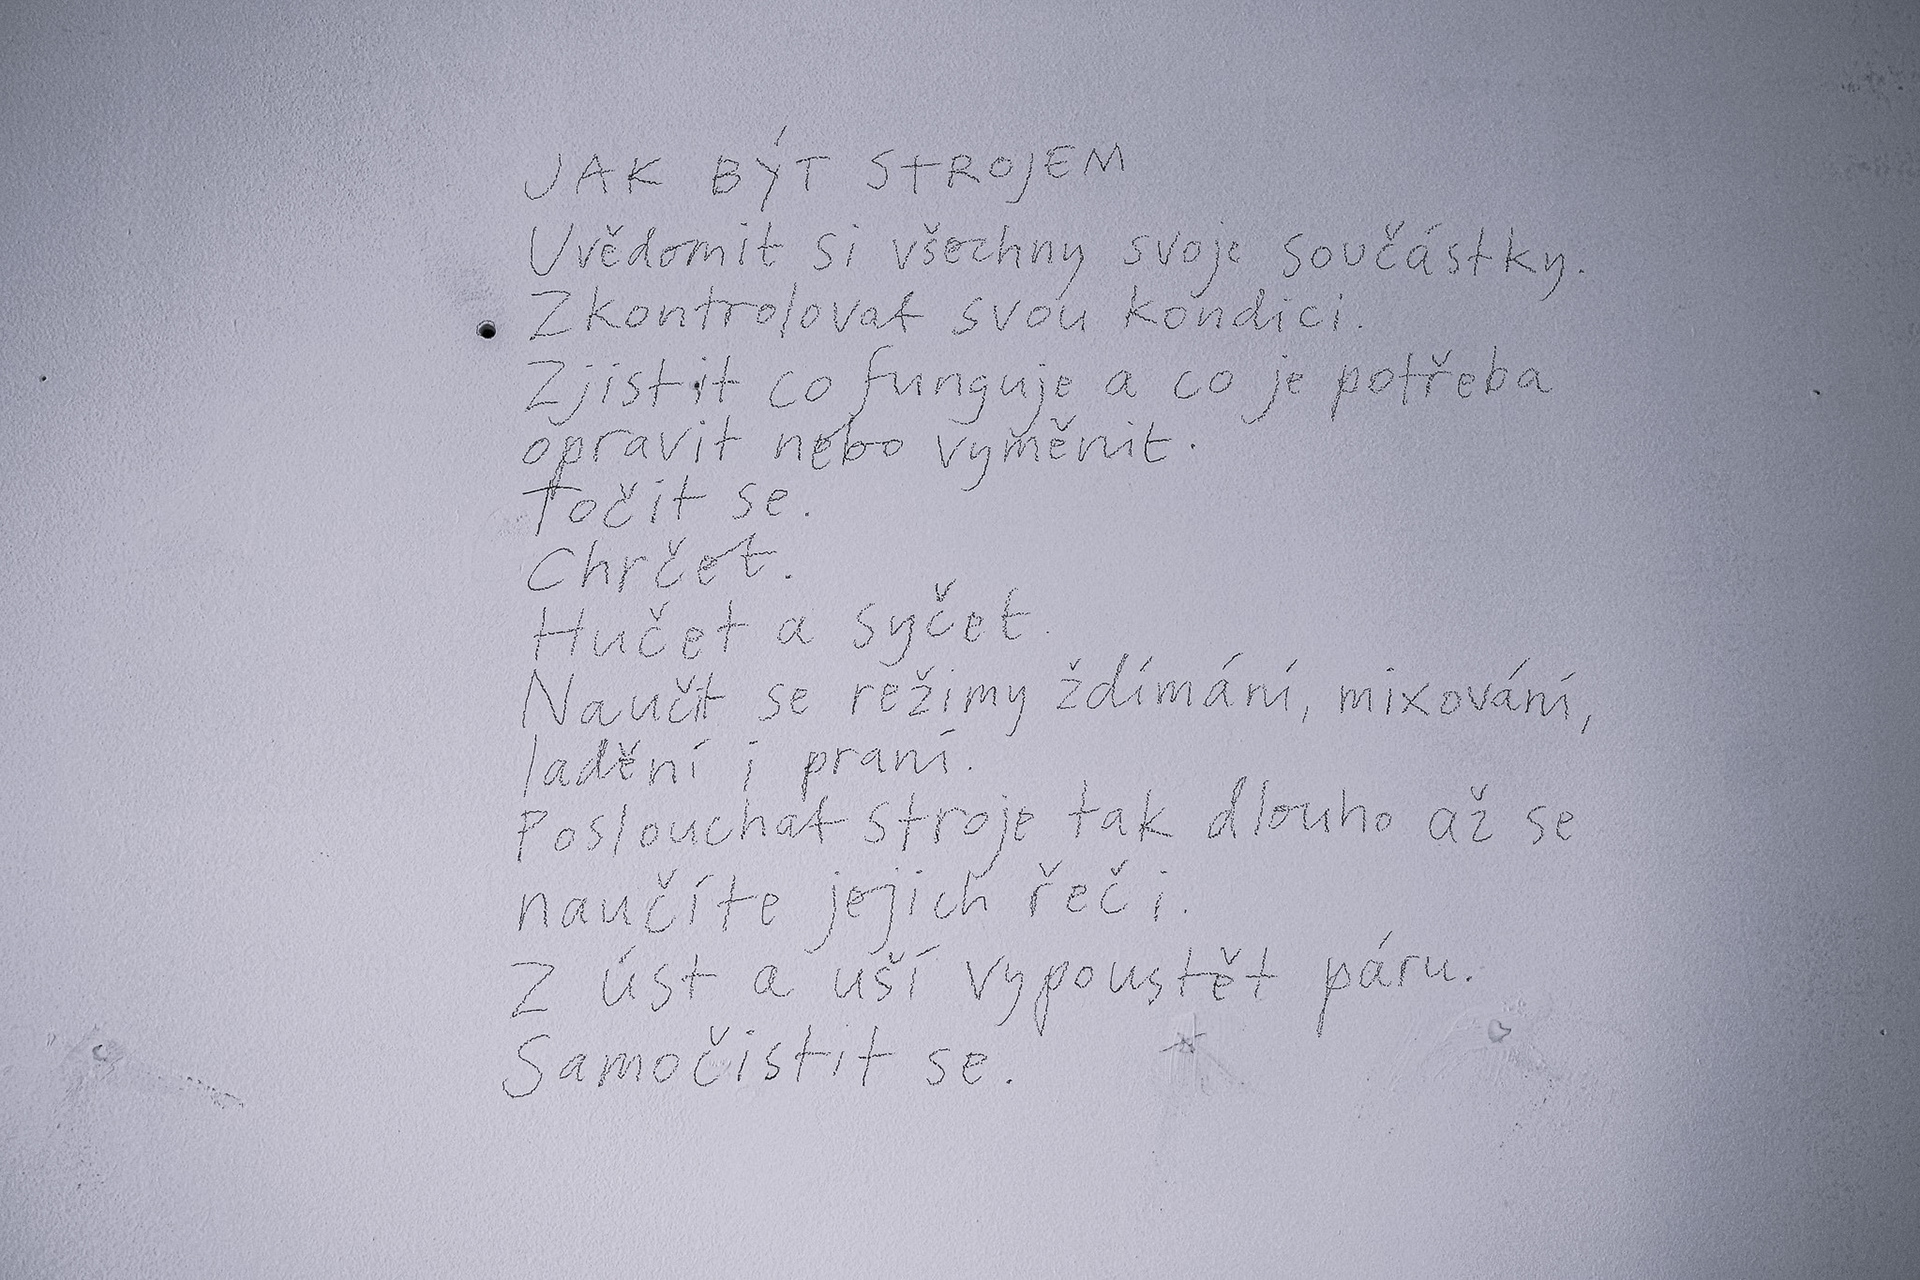 JAK BÝT STROJEM
Uvědomit si všechny svoje součástky.
Zkontrolovat svou kondici.
Zjistit co funguje a co je potřeba
opravit nebo vyměnit.
Točit se.
Chrčet.
Hučet a syčet.
Naučit se režimy ždímání, mixování,
ladění i praní.
Poslouchat stroje tak dlouho až se
naučíte jejich řeči.
Z úst a uší vypouštět páru.
Samočistit se.